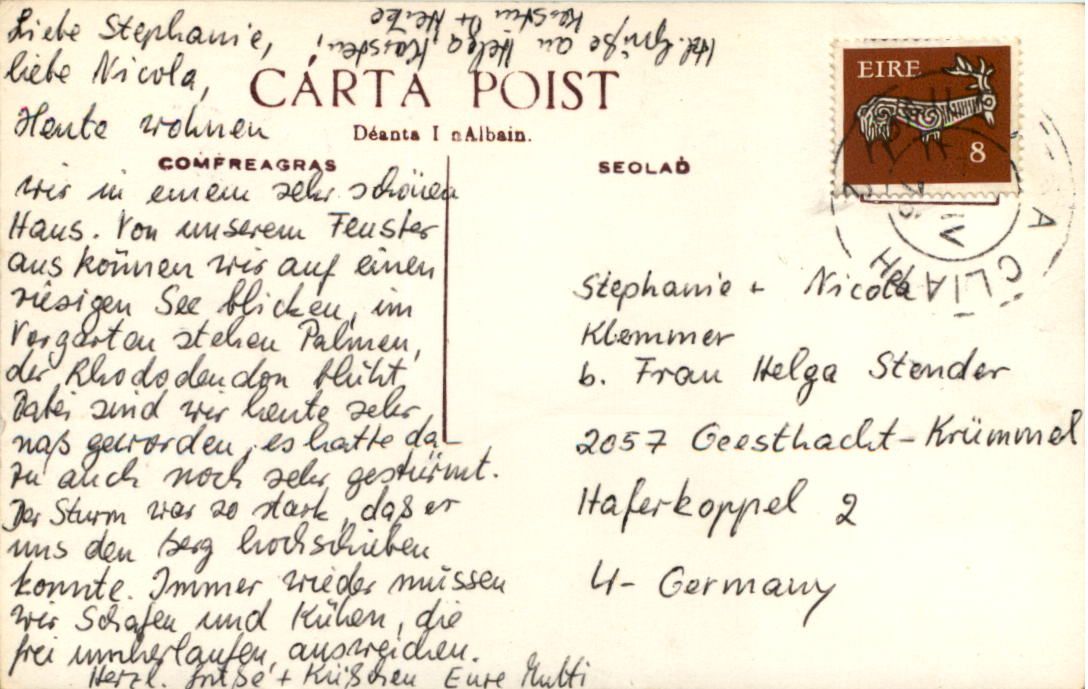 Liebe Stephanie,
liebe Nicola,
Heute wohnen
wir in einem sehr schönen
Haus. Von unserem Fenster
aus können wir auf einen
riesigen See blicken, im
Vorgarten stehen Palmen,
der Rhododendon blüht
Dabei sind wir heute sehr
naß geworden, es hatte da-
zu auch noch sehr gestürmt.
Der Sturm war so stark, daß er
uns den Berg hochschieben
konnte. Immer wieder müssen
wir Schafen und Kühen, die
frei umherlaufen, ausweichen.
Herzl. Grüße + Küßchen Eure Mutti
Hzl. Grüße an Helga, Karsten,
Kerstin + Heike
CÁRTA POIST
Déanta I nAlbain.
COMFREAGRAS
SEOLAḊ
EIRE
8
CLIATH
IV
Stephanie + Nicola
Klemmer
b. Frau Helga Stender
2057 Geesthacht-Krümmel
Haferkoppel 2
W- Germany